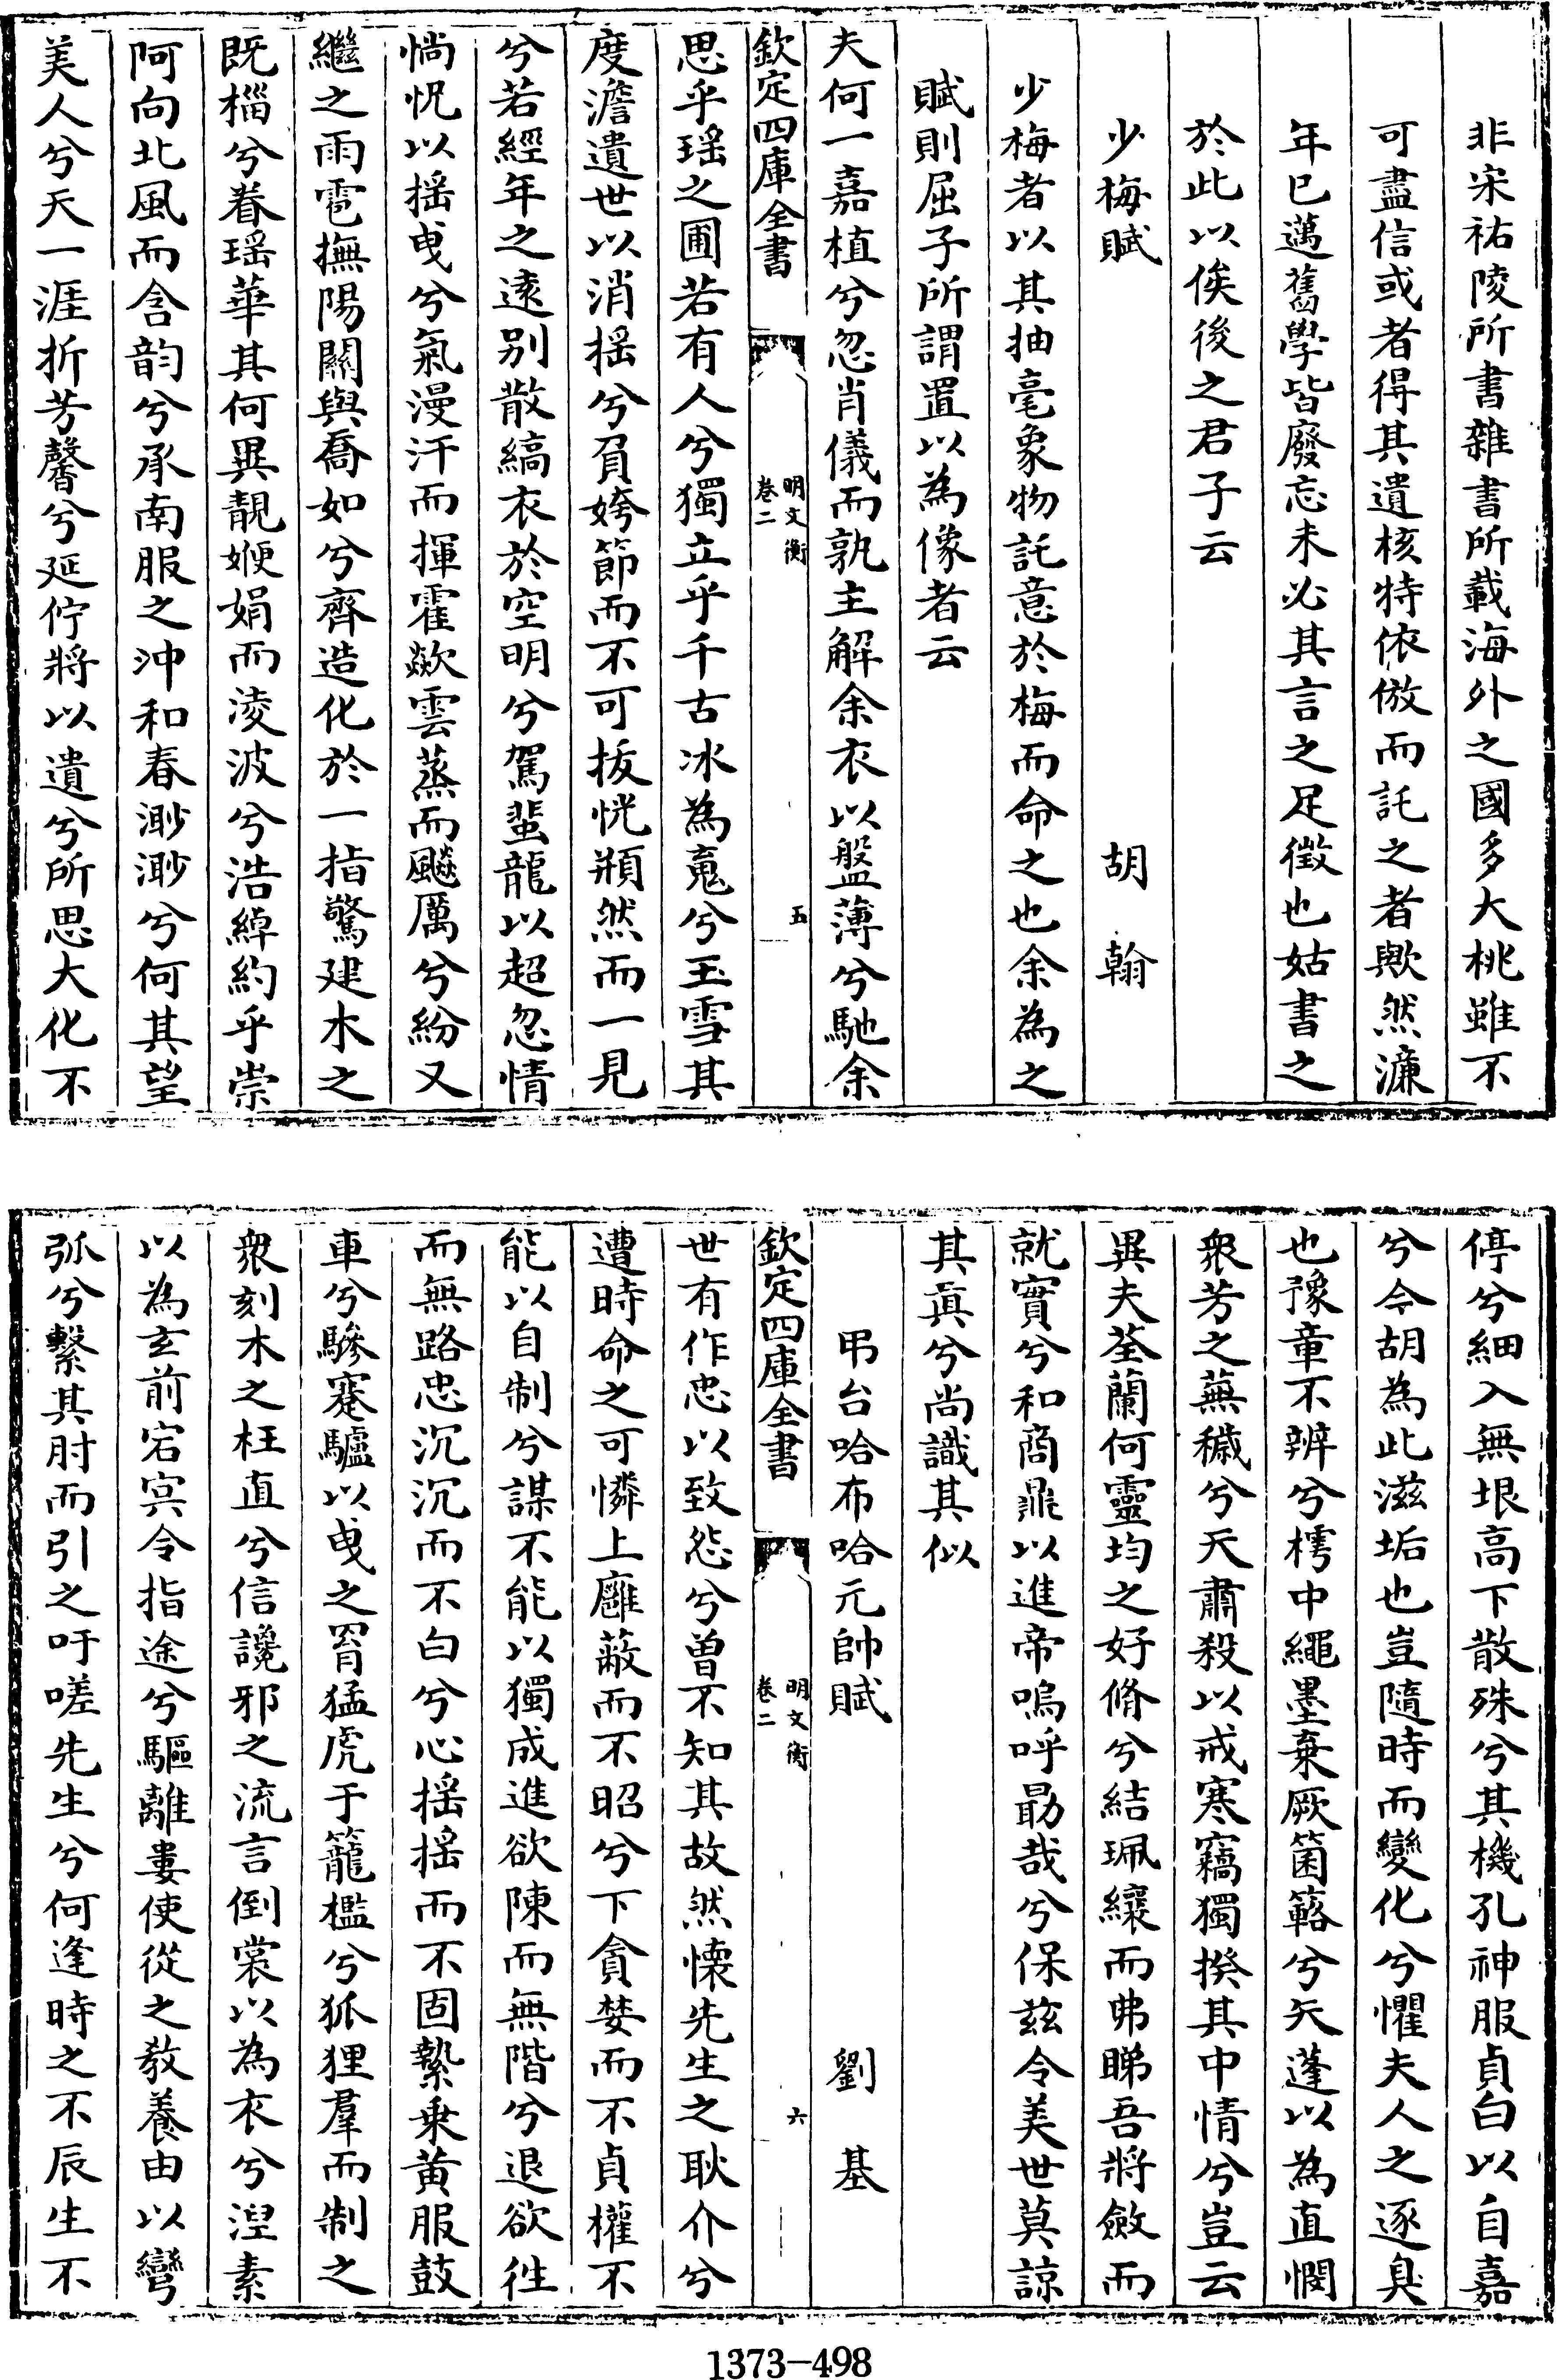 非宋祐陵所書雜書所載海外之國多大桃雖不
可盡信或者得其遺核特依倣而託之者歟然濂
年已邁舊學皆廢忘未必其言之足徵也姑書之
於此以俟後之君子云
少梅賦　胡翰
少梅者以其抽毫象物託意於梅而命之也余為之
賦則屈子所謂置以為像者云
夫何一嘉植兮忽肖儀而孰主解余衣以盤薄兮馳余
欽定四庫全書　明文衡　卷二　五
思乎瑶之圃若有人兮獨立乎千古冰為䰟兮玉雪其
度澹遺世以消揺兮負姱節而不可扳恍頩然而一見
兮若經年之逺别散縞衣於空明兮駕蜚龍以超忽情
惝怳以揺曵兮氣漫汗而揮霍歘雲蒸而飈厲兮紛又
繼之雨雹撫陽關與喬如兮齊造化於一指驚建木之
既椔兮眷瑶華其何異靚㛹娟而淩波兮浩綽約乎崇
阿向北風而含韵兮承南服之沖和春渺渺兮何其望
美人兮天一涯折芳馨兮延佇將以遺兮所思大化不
停兮細入無垠高下散殊兮其機孔神服貞白以自嘉
兮今胡為此滋垢也豈隨時而變化兮懼夫人之逐臭
也豫章不辨兮樗中繩墨棄厥箘簵兮矢蓬以為直憫
衆芳之蕪穢兮天肅殺以戒寒竊獨揆其中情兮豈云
異夫荃蘭何靈均之好脩兮結珮纕而弗睇吾將斂而
就實兮和商鼎以進帝嗚呼勗哉兮保兹令美世莫諒
其真兮尚識其似
弔台哈布哈元帥賦　劉基
欽定四庫全書　明文衡　卷二　六
世有作忠以致怨兮曽不知其故然懐先生之耿介兮
遭時命之可憐上廱蔽而不昭兮下貪婪而不貞權不
能以自制兮謀不能以獨成進欲陳而無階兮退欲徃
而無路忠沉沉而不白兮心揺揺而不固縶乗黄服鼓
車兮驂蹇驢以曵之罥猛虎于籠檻兮狐狸羣而制之
衆刻木之枉直兮信讒邪之流言倒裳以為衣兮涅素
以為玄前宕㝠令指途兮驅離婁使從之敎養由以彎
弧兮繫其肘而引之吁嗟先生兮何逢時之不辰生不
1373-498